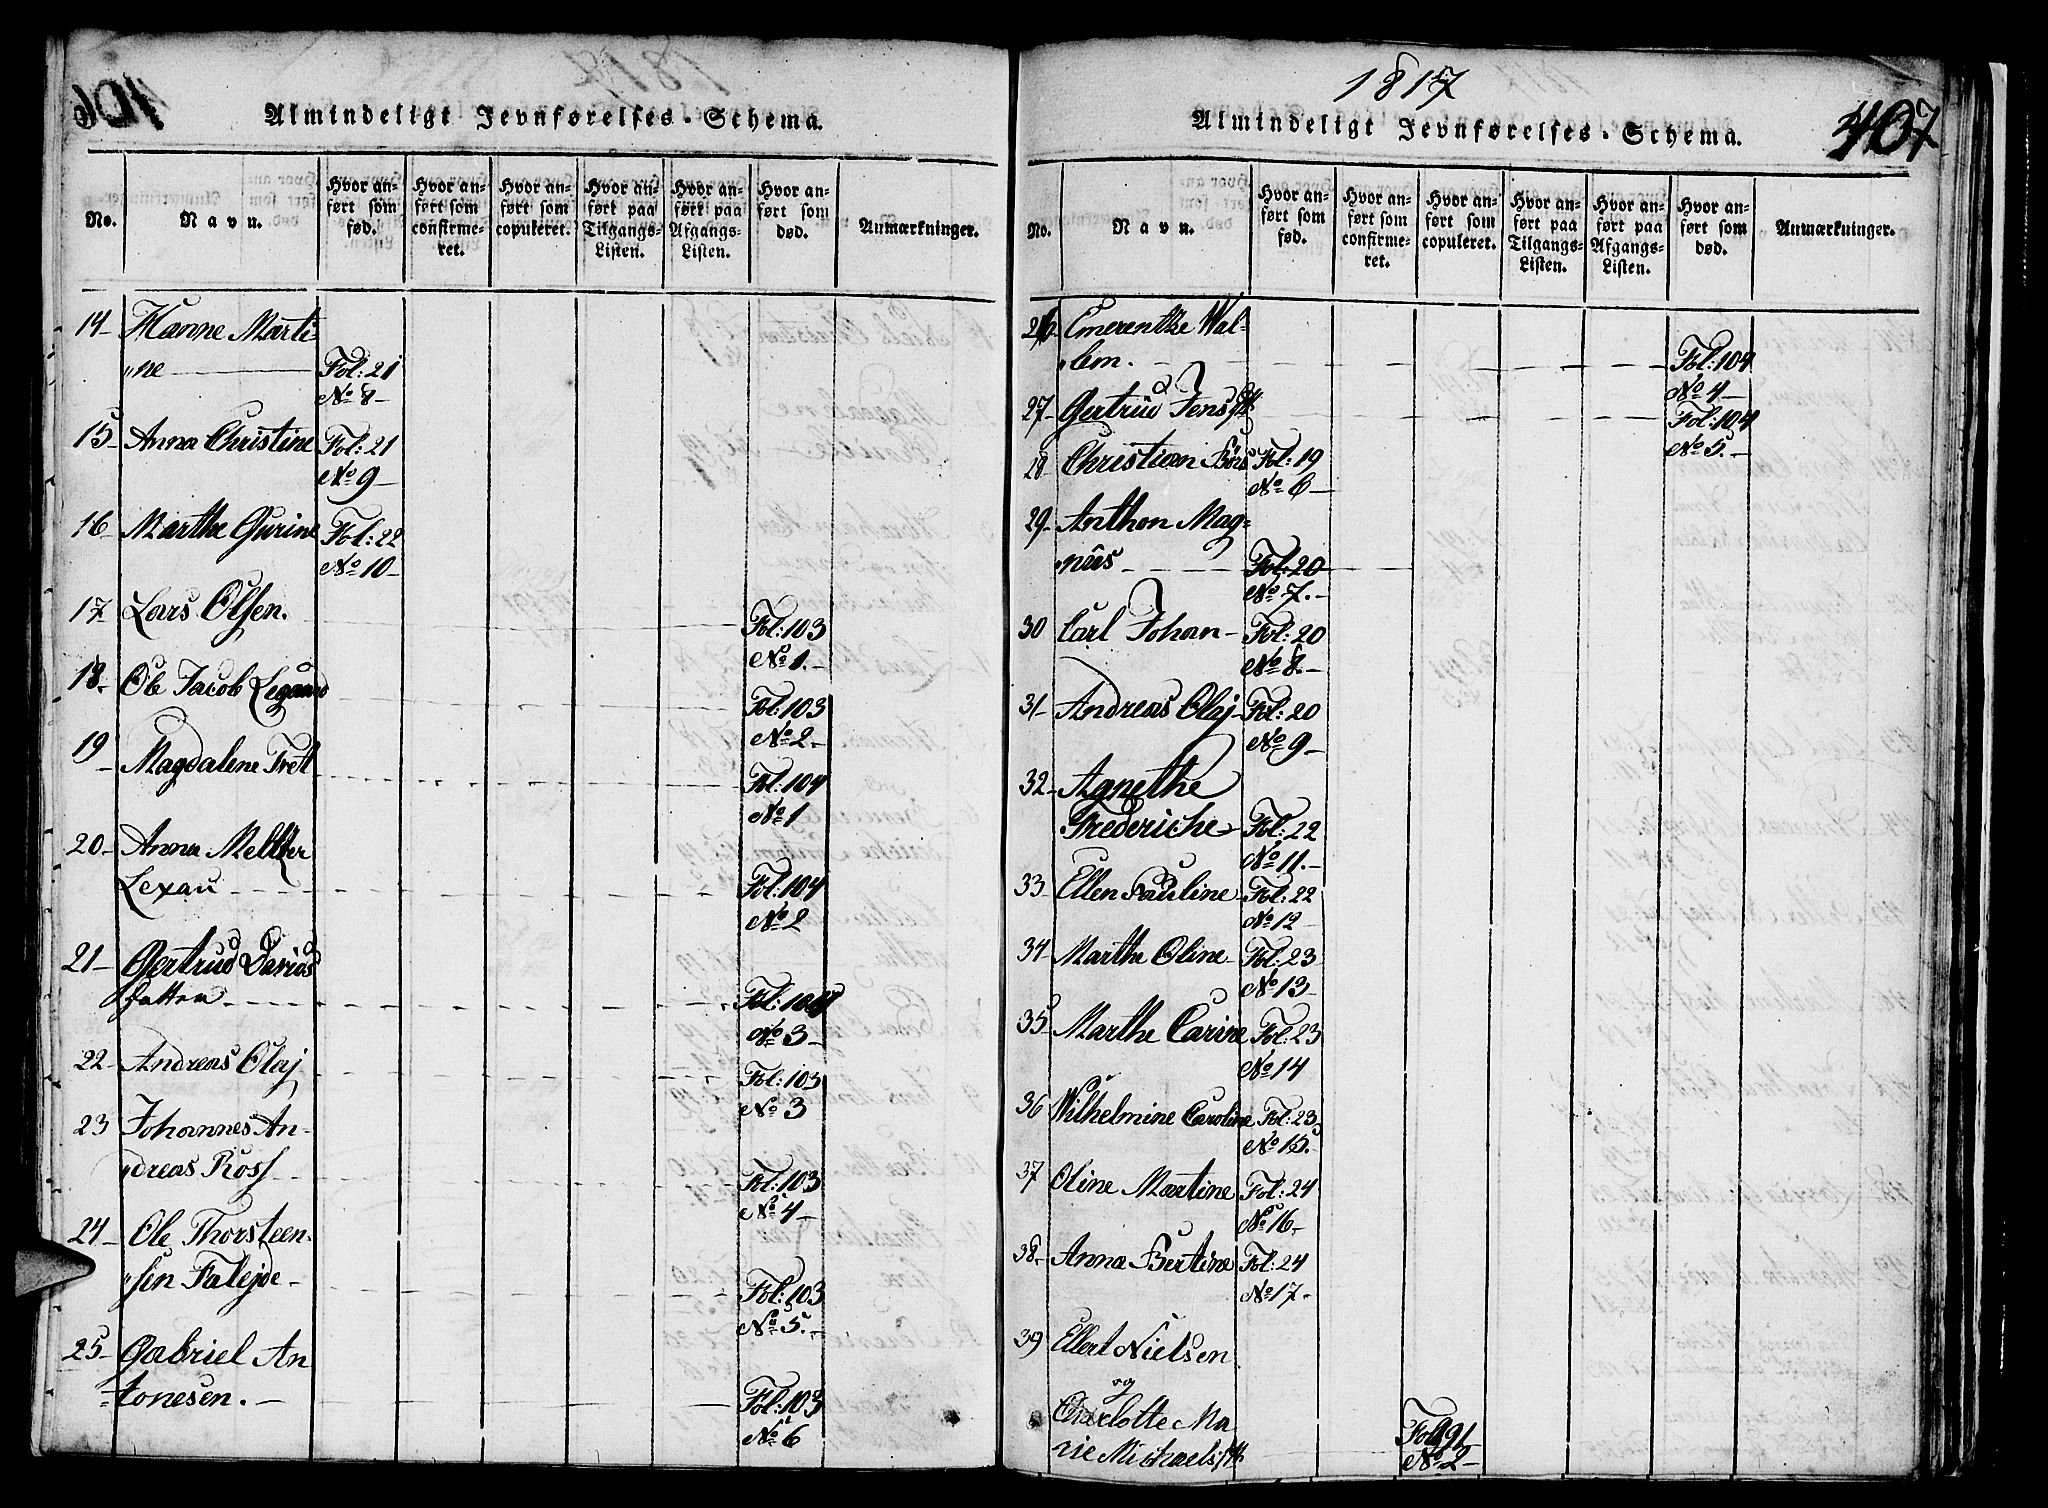 406
Almindeligt Jevnførelses-Schema.
No.
Navn.
Hvor anført som fød.
Hvor anført som confirmeret.
Hvor anført som copuleret.
Hvor anført paa Tilgangs-Listen.
Hvor anført paa Afgangs-Listen.
Hvor anført som død.
Anmærkninger.
14- Hanne Marti-
"ne Fol: 21
No 8-
15- Anna Christine Fol: 21
No 9-
16- Marthe Gurine Fol: 22
No 10-
17- Lars Olsen. Fol: 103
No 1.-
18- Ole Jacob Legaard Fol: 103
No 2-
19 Magdalene Trett Fol: 104
No 1
20- Anna Meltzer
Lexau Fol: 104
No 2
21- Gertrud Davids
Fol: 104
No 3-
22- Andreas Olaj Fol: 103
No 3
23 Johannes An-
"dreas Ross Fol: 103
No 4-
24- Ole Thorsteen-
"sen Falejde- Fol: 103
No 5.-
25- Gabriel An
=tonesen.- Fol: 103
No 6
1817
407
Almindeligt Jevnførelses-Schema.
No.
Navn.
Hvor anført som fød.
Hvor anført som confirmeret.
Hvor anført som copuleret.
Hvor anført paa Tilgangs-Listen.
Hvor anført paa Afgangs-Listen.
Hvor anført som død.
Anmærkninger.
26- Emerentze Wal-
"lem. Fol: 104
No 4-
27- Gertrud Jens Fol: 104
No 5.-
28 Christian Fol: 19
No 6-
29- Anthon Mag-
"nus- Fol: 20
No 7.-
30 Carl Johan- Fol: 20
No 8.-
31- Andreas Olaj- Fol: 20
No 9-
32- Agnethe
Frederiche- Fol: 22
No 11.-
33 Ellen Pauline- Fol: 22
No 12-
34- Marthe Oline- Fol: 23
No 13-
35 Marthe Carine Fol: 23
No 14
36 Wilhelmine Caroline Fol: 23
No 15.
37 Oline Martine Fol: 24
No 16-
38- Anna Bertine Fol: 24
No 17-
39 Ellert Nielsen
og
Charlotte Ma
rie Michaels Fol 91
No 2-